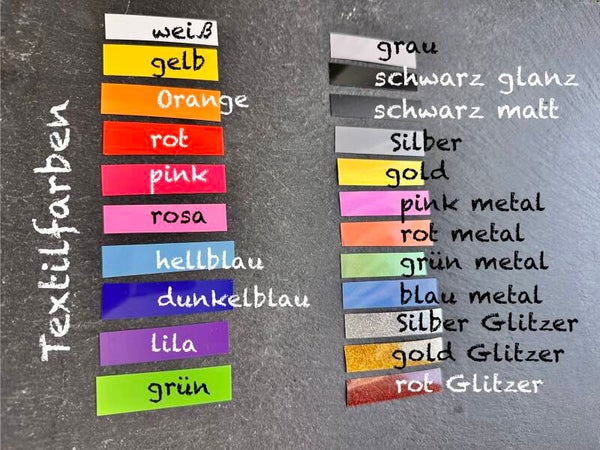 Textilfarben
weiß
gelb
Orange
rot
pink
rosa
hellblau
dunkelblau
lila
grün
grau
schwarz glanz
schwarz matt
Silber
gold
pink metal
rot metal
grün metal
blau metal
Silber Glitzer
gold Glitzer
rot Glitzer